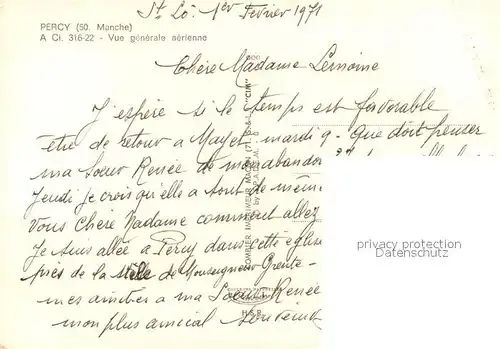 St Lô. 1er Février 1971
PERCY (50. Manche)
A Ci. 316-22 - Vue générale aérienne
Chère Madame Lemoine
J'espère si le temps est favorable
être de retour a Mayet mardi 9 - Que doit penser
ma Soeur Renée de mon abandon
Jeudi je crois qu'elle a tout de même
Vous Chère Madame comment allez
Je suis allée a Percy dans cette église
près de la stèle de Monseigneur Grente -
mes amitiés a ma Soeur Renée
mon plus amical souvenir
COMBIER IMPRIMEUR MACON (71) S.P.A.D.E.M.
"CIM"
privacy protection
Datenschutz